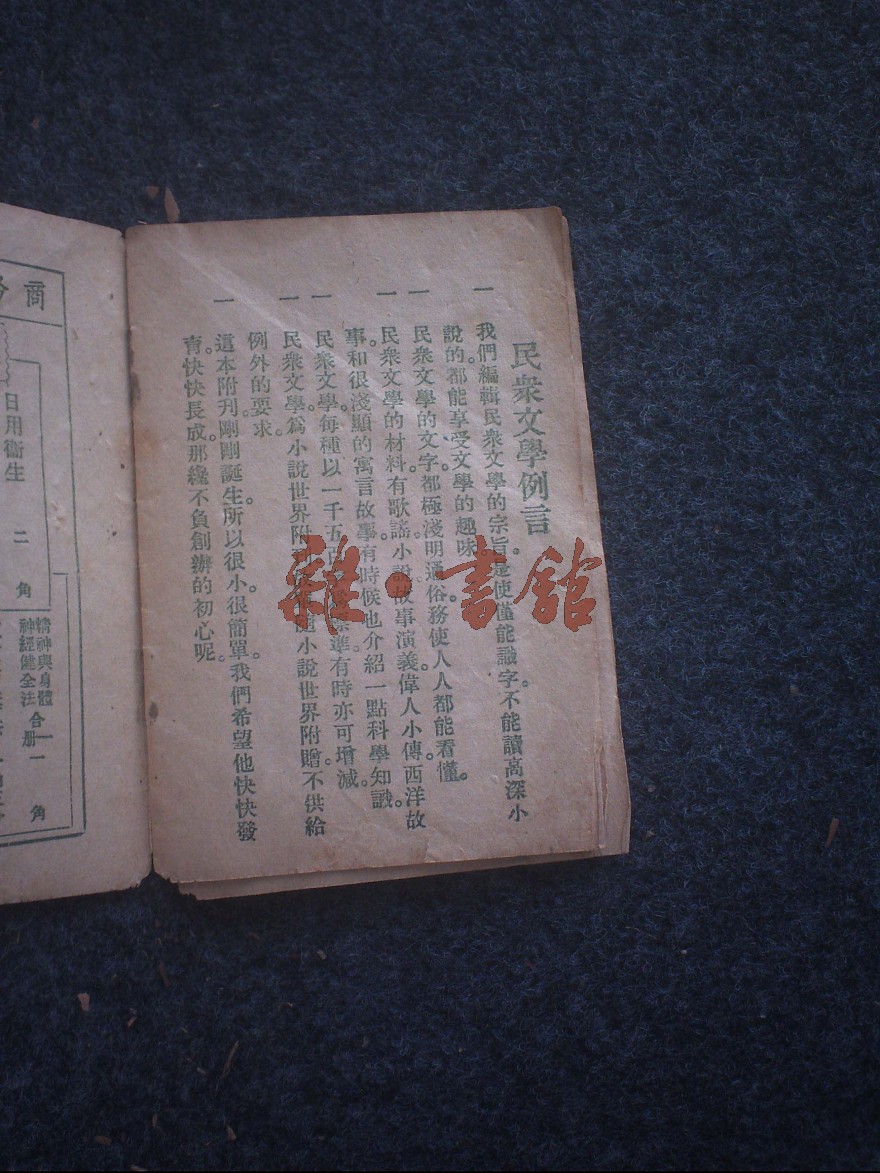 民衆文學例言
一 我們編輯民衆文學的宗旨。是使僅能識字不能讀高深小
說的。都能享受文學的趣味。
一 民衆文學的文字。都極淺明通俗。務使人人都能看懂。
一 民衆文學的材料有歌謠小說故事演義偉人小傳西洋故
事和很淺顯的寓言故事有時候也介紹一點科學知識。
一 民衆文學每種以一千五百標準有時亦可增減。
一 民衆文學。爲小說世界附刊隨小說世界附贈不供給
例外的要求。
一 這本附刊剛剛誕生。所以很小很簡單。我們希望他快快發
育。快快長成。那纔不負創辦的初心呢。
雜·書館
商
日用衞生 二角
精神與身體
神經健全法 合册一 一角